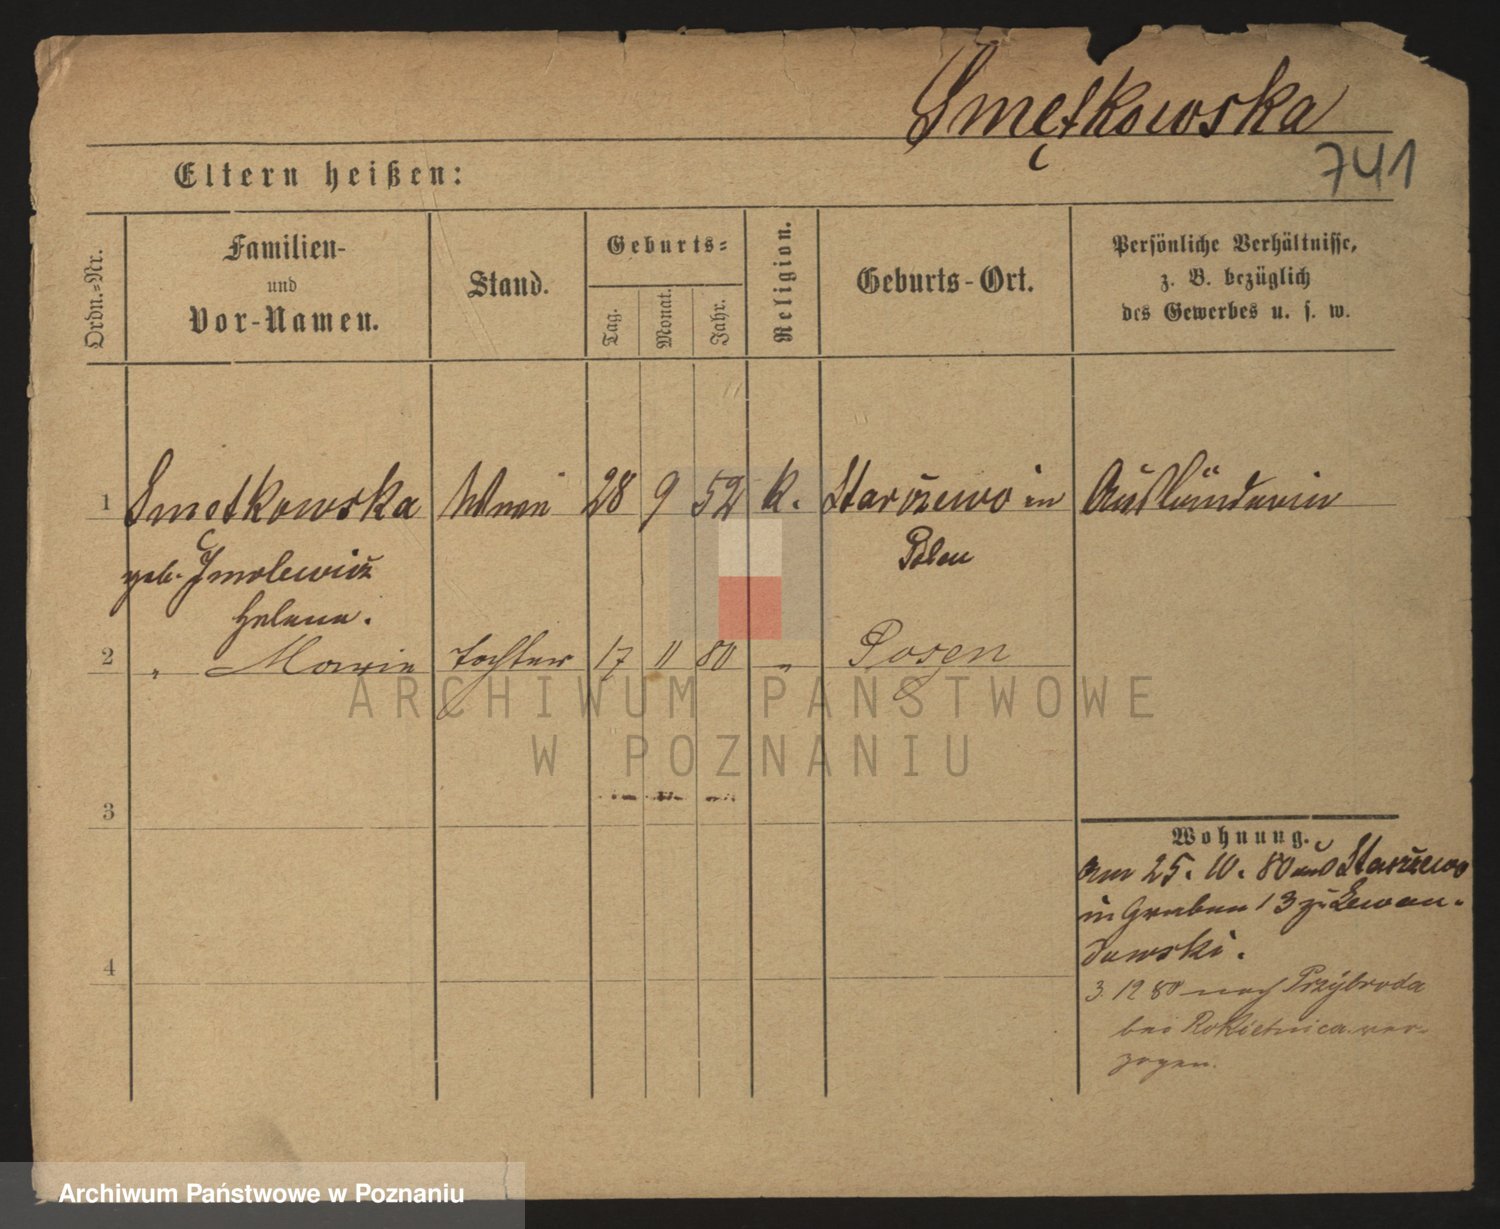 Smętkowska
741
Eltern heißen:
Ordn.-Nr.
Familien-
und
Vor-Namen.
Stand.
Geburts-
Tag.
Monat.
Jahr.
Religion.
Geburts-Ort.
Persönliche Verhältnisse,
z. B. bezüglich
des Gewerbes u. s. w.
1 Smętkowska 28 9 52 k. in Ausländerin
geb. Polen
Helena.
2 " Marie Tochter 17 11 80 " Posen
ARCHIWUM PAŃSTWOWE
W POZNANIU
3
Wohnung.
am 25. 10. 80 aus
in Graben 13 z. Lewan-
dowski.
4
3 12 80 nach Przybroda
bei Rokietnica ver-
zogen.
Archiwum Państwowe w Poznaniu